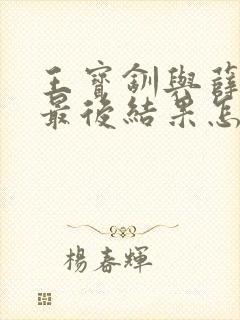 王寶釧與薛
最後結果怎
楊春輝